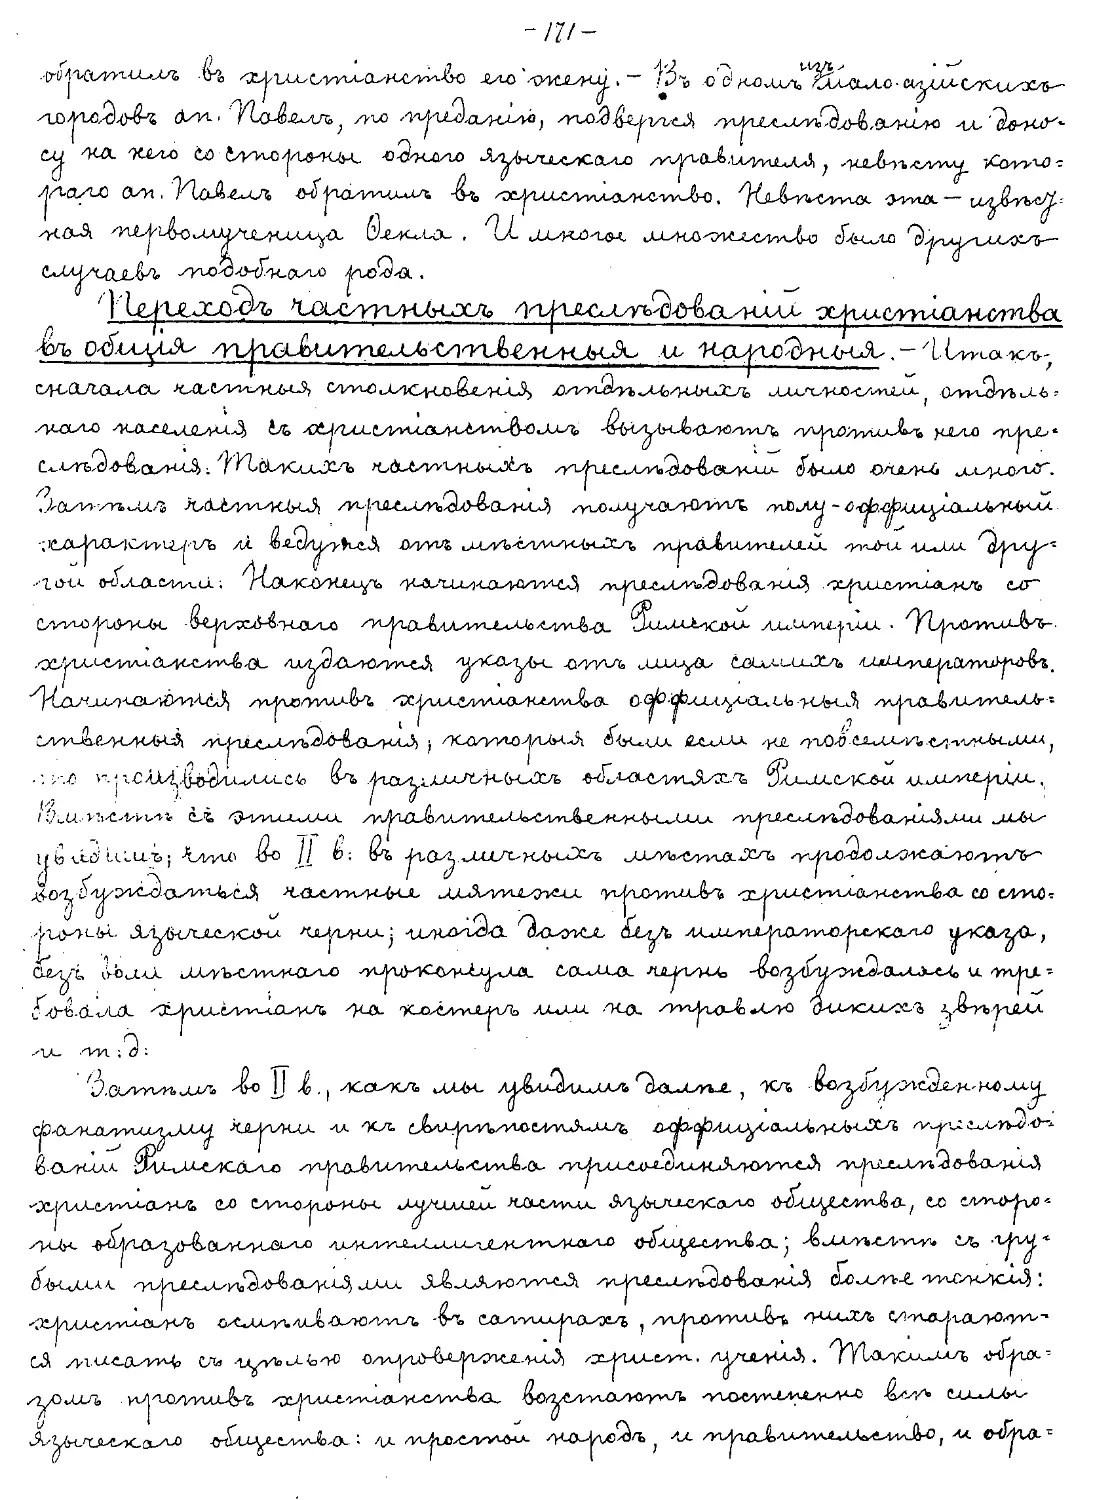 -171-
обратилъ въ христіанство его жену.- Въ одномъ изъ мало-азійскихъ
городовъ ап. Павелъ, по преданію, подвергся преслѣдованію и доно-
су на него со стороны одного языческаго правителя, невѣсту кото-
раго ап. Павелъ обратилъ въ христіанство. Невѣста эта - извѣст-
ная первомученица Ѳекла. И многое множество было другихъ
случаевъ подобнаго рода.
Переходъ частныхъ преслѣдованій христіанства
въ общія правительственныя и народныя.- Итакъ,
сначала частныя столкновенія отдѣльныхъ личностей, отдѣль-
наго населенія съ христіанствомъ вызываютъ противъ него пре-
слѣдованія. Такихъ частныхъ преслѣдованій было очень много.
Затѣмъ частныя преслѣдованія получаютъ полу-оффиціальный
характеръ и ведутся отъ мѣстныхъ правителей той или дру-
гой области. Наконецъ начинаются преслѣдованія христіанъ со
стороны верховнаго правительства Римской имперіи. Противъ
христіанства издаются указы отъ лица самихъ императоровъ.
Начинаются противъ христіанства оффиціальныя правитель-
ственныя преслѣдованія, которыя были если не повсемѣстными,
то производились въ различныхъ областяхъ Римской имперіи.
Вмѣстѣ съ этими правительственными преслѣдованіями мы
увидимъ, что во II в. въ различныхъ мѣстахъ продолжаютъ
возбуждаться частные мятежи противъ христіанства со сто-
роны языческой черни; иногда даже безъ императорскаго указа,
безъ воли мѣстнаго проконсула сама чернь возбуждалась и тре-
бовала христіанъ на костеръ или на травлю дикихъ звѣрей
и т.д.
Затѣмъ во II в., какъ мы увидимъ далѣе, къ возбужденному
фанатизму черни и къ свирѣпостямъ оффиціальныхъ преслѣдо-
ваній Римскаго правительства присоединяются преслѣдованія
христіанъ со стороны лучшей части языческаго общества, со сторо-
ны образованнаго интеллигентнаго общества; вмѣстѣ съ гру-
быми преслѣдованіями являются преслѣдованія болѣе тонкія:
христіанъ осмѣиваютъ въ сатирахъ, противъ нихъ старают-
ся писать съ цѣлью опроверженія христ. ученія. Такимъ обра-
зомъ противъ христіанства возстаютъ постепенно всѣ силы
языческаго общества: и простой народъ, и правительство, и обра-